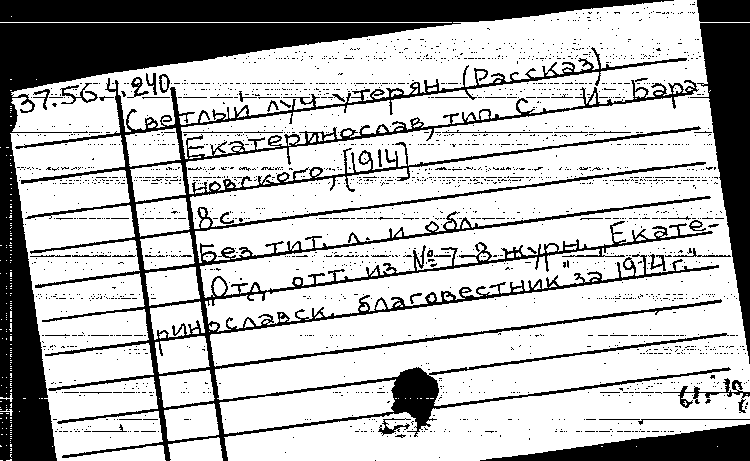 37.56.4.240
Светлый луч утерян. (Рассказ).
Екатеринослав, тип. С. И. Бара-
новского, [1914].
8 с.
Без тит. л. и обл.
"Отд. отт. из № 7-8 журн. „Екате-
ринославск. благовестник" за 1914 г."